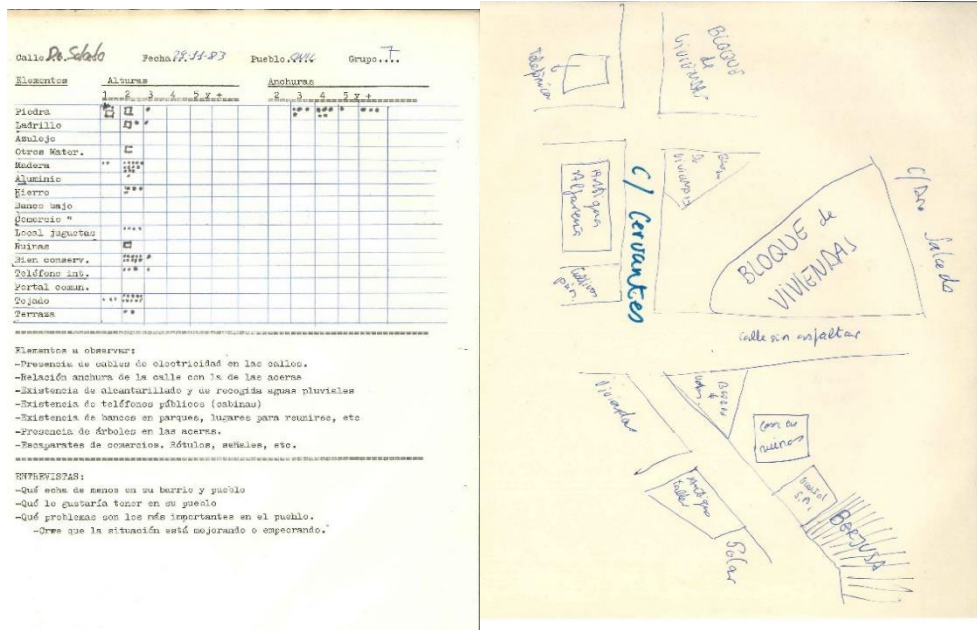 Calle Dr. Salcedo Fecha 29-11-83 Pueblo Grupo 7
Elementos Alturas Anchuras
1 2 3 4 5 y + 2 3 4 5 y +
Piedra
Ladrillo
Azulejo
Otros Mater.
Madera
Aluminio
Hierro
Banco bajo
Comercio "
Local juguetas
Ruinas
Bien conserv.
Teléfono int.
Portal comun.
Tejado
Terraza
Elementos a observar:
-Presencia de cables de electricidad en las calles.
-Relación anchura de la calle con la de las aceras
-Existencia de alcantarillado y de recogida aguas pluviales
-Existencia de teléfonos públicos (cabinas)
-Existencia de bancos en parques, lugares para reunirse, etc
-Presencia de árboles en las aceras.
-Escaparates de comercios. Rótulos, señales, etc.
ENTREVISTAS:
-Qué echa de menos en su barrio y pueblo
-Qué le gustaría tener en su pueblo
-Qué problemas son los más importantes en el pueblo.
-Cree que la situación está mejorando o empeorando.
Telefónica
BLOQUE
de
VIVIENDAS
Antigua
Alfarería
C/ Cervantes
de
viviendas
BLOQUE de
VIVIENDAS
C/ Dr. Salcedo
calle sin asfaltar
Viviendas
Casa en
ruinas
Antiguo
taller
Solar
BERJUSA